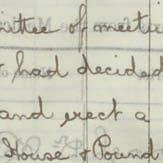 ittee of meetin
had decided
and erect a
House & Pound